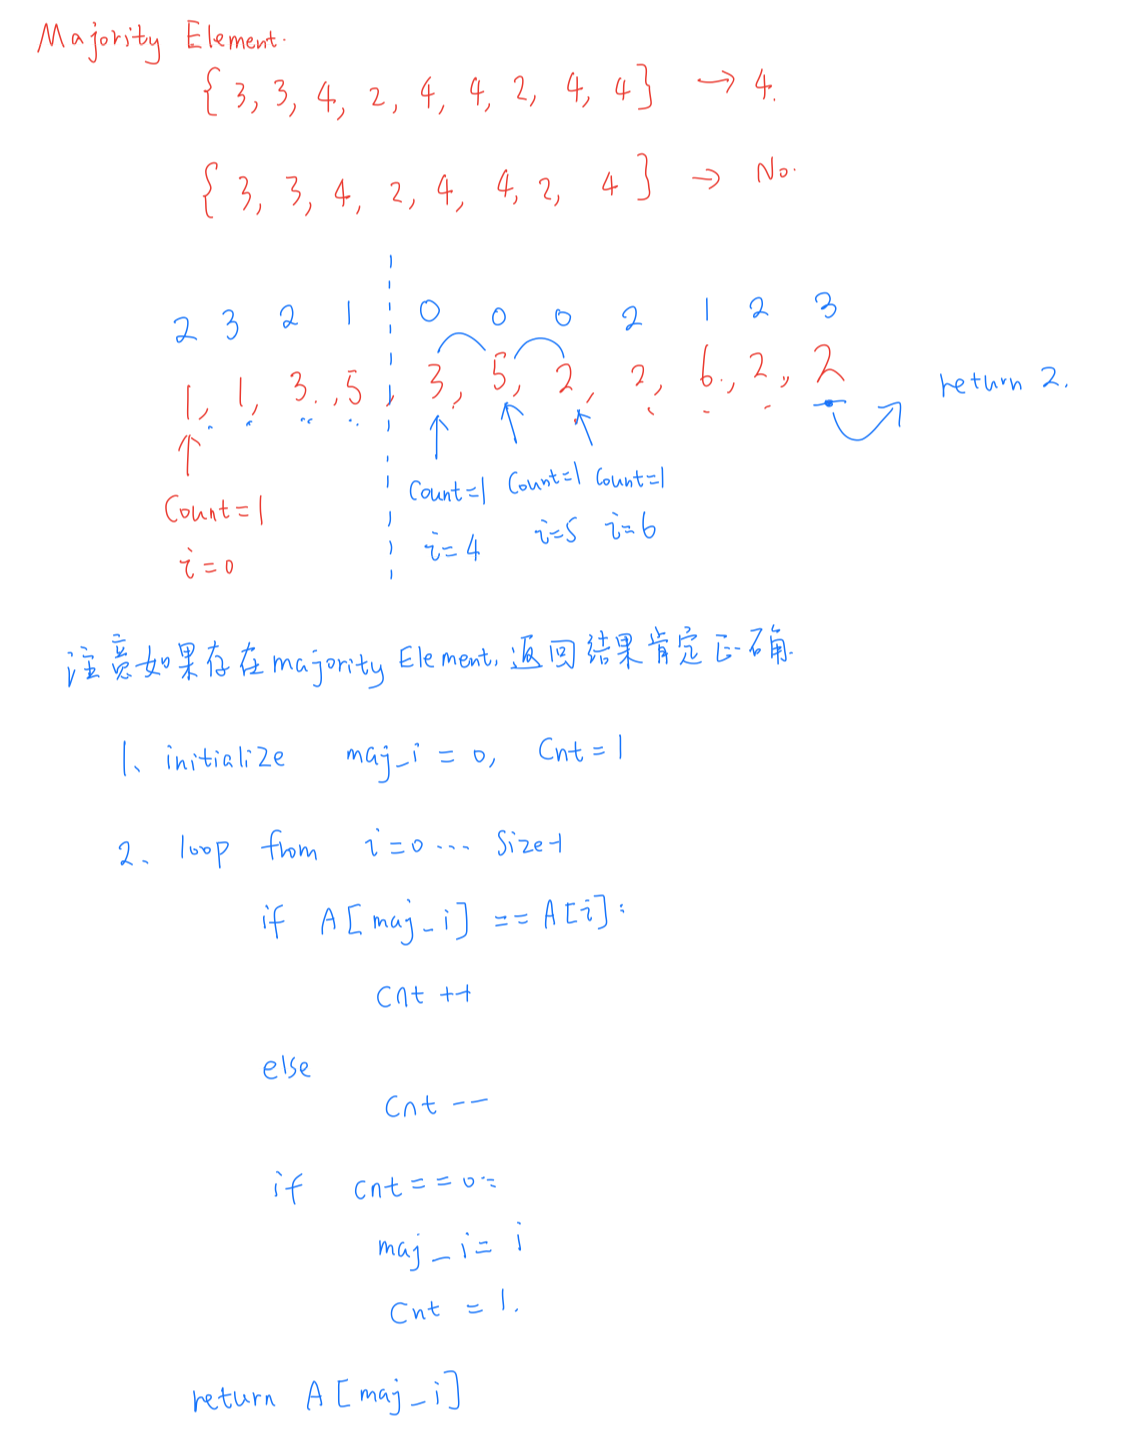 Majority Element.
{ 3, 3, 4, 2, 4, 4, 2, 4, 4 } → 4.
{ 3, 3, 4, 2, 4, 4, 2, 4 } → No.
2 3 2 1 0 0 0 2 1 2 3
1, 1, 3., 5, 3, 5, 2, 2, 6., 2, 2
return 2.
Count=1 Count=1 Count=1
Count=1
i=4 i=5 i=6
i=0
注意如果存在majority Element, 返回结果肯定正确.
1、 initialize maj_i = 0, Cnt = 1
2、 loop from i=0... Size-1
if A[maj_i] == A[i]:
Cnt ++
else
Cnt --
if cnt==0:
maj_i= i
Cnt = 1.
return A[maj_i]